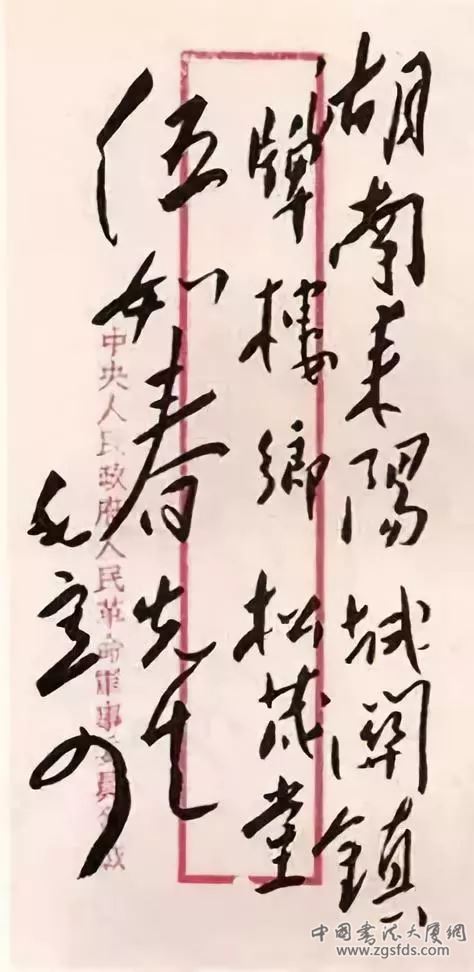 湖南耒陽城關鎮六
牌樓鄉松茂堂
伍如春先生
毛寄
中央人民政府人民革命軍事委員會緘
中國書法大厦網
www.zgsfds.com